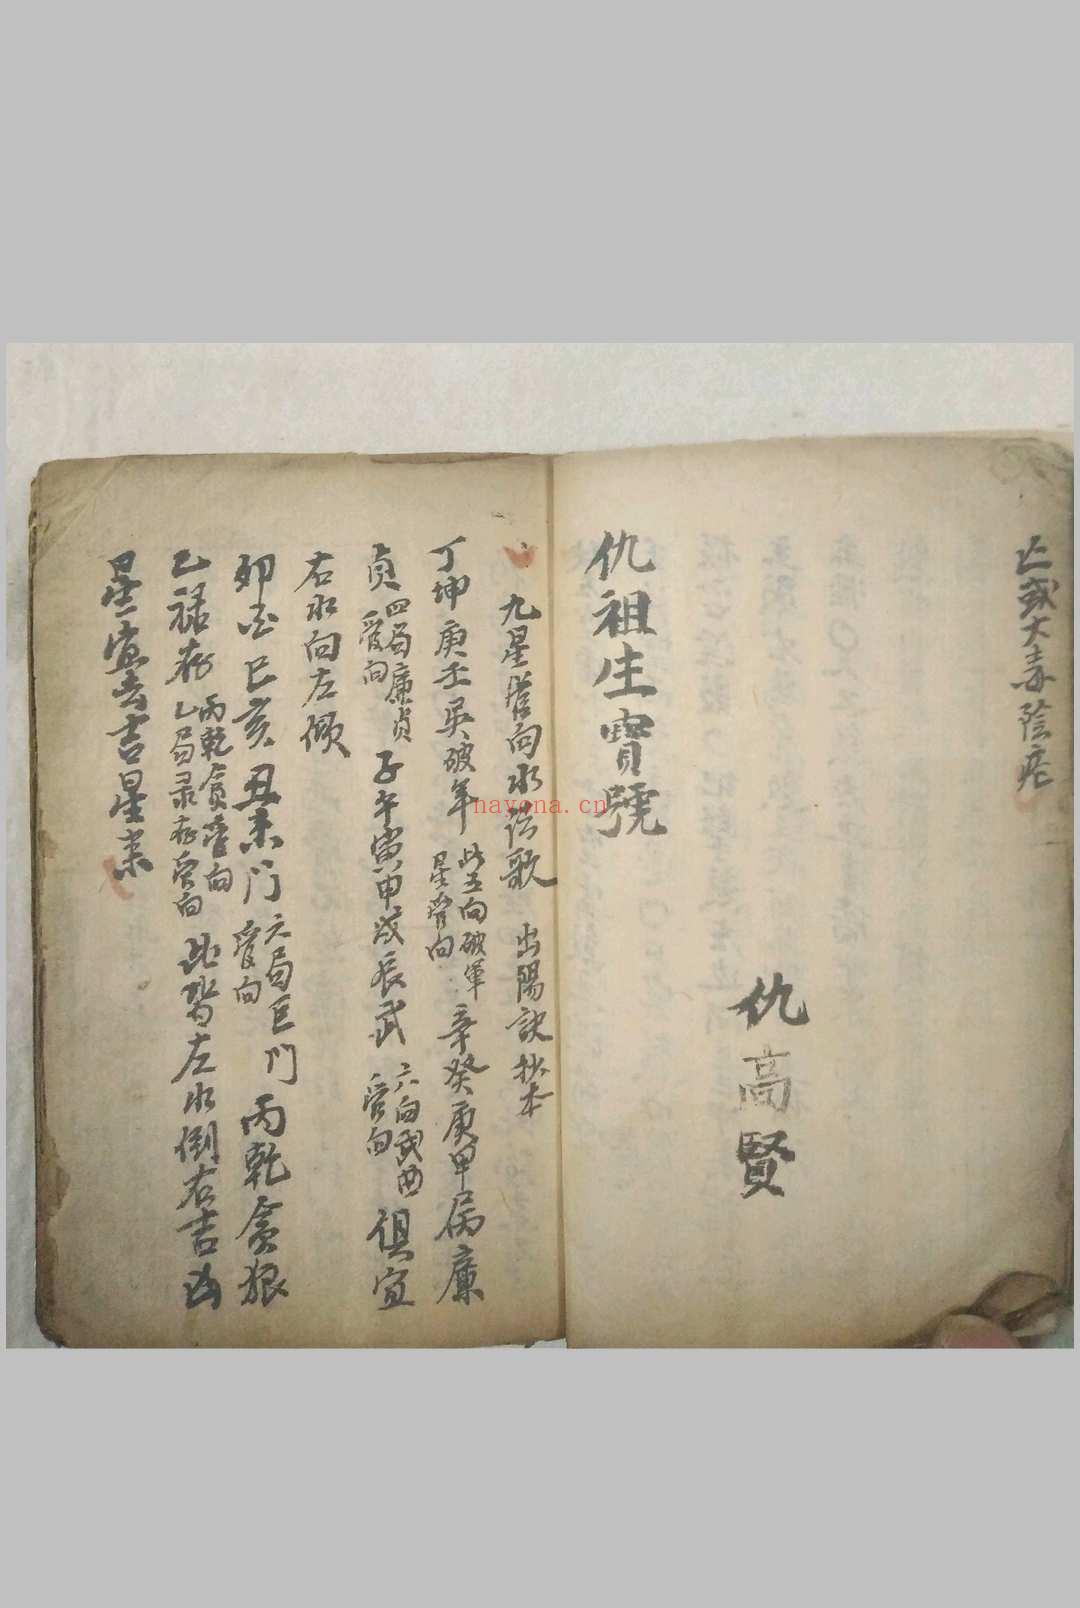 亡或大毒陰疮
仇高賢
仇祖生寳號
九星管向水法歌 出陽訣抄本
丁坤庚壬吴破军 此五向破軍星管向 辛癸庚甲局廉
貞 四局廉貞管向 子午寅申戌辰武 六向武曲管向 俱宜
右水向左傾
卯酉巳亥丑未门 六局巨门管向 丙乾貪狼
乙禄存 丙乾貪管向 乙局录存管向 此皆左水倒右吉凶
星宜去吉星来
nayona.cn